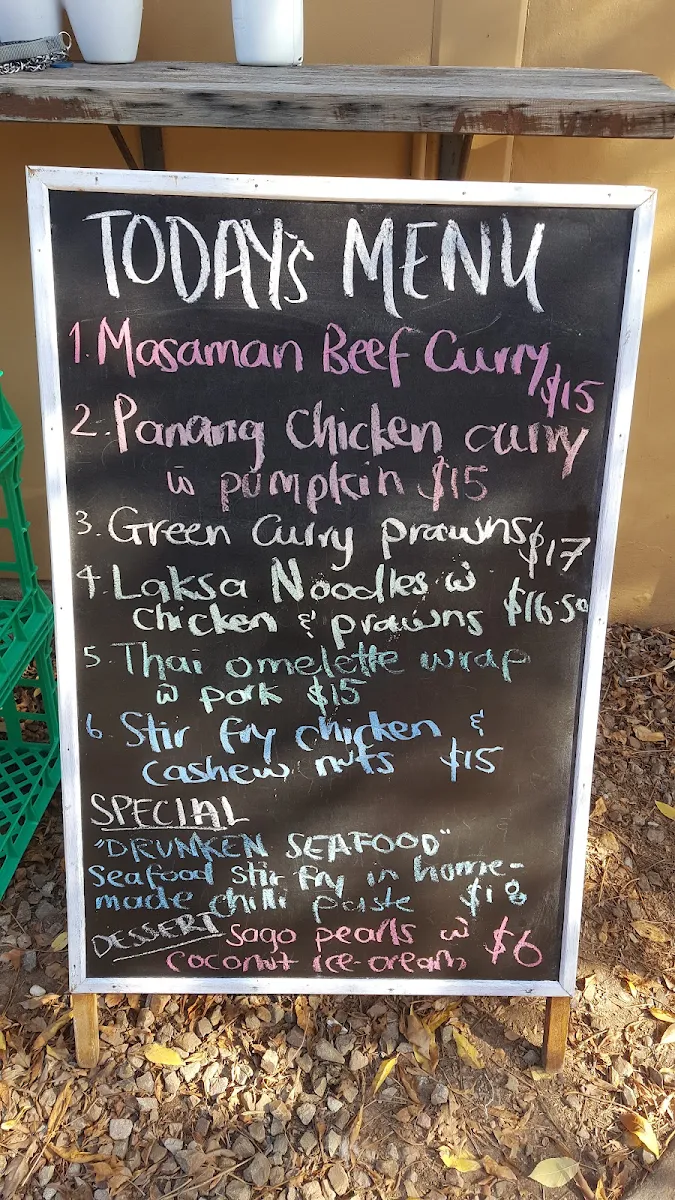 TODAY'S MENU
1. Masaman Beef Curry $15
2. Panang chicken curry
w pumpkin $15
3. Green Curry prawns $17
4. Laksa Noodles w
chicken & prawns $16.50
5. Thai omelette wrap
w pork $15
6. Stir fry chicken &
cashew nuts $15
SPECIAL
"DRUNKEN SEAFOOD"
Seafood stir fry in home-
made chilli paste $18
DESSERT Sago pearls w $6
coconut ice-cream